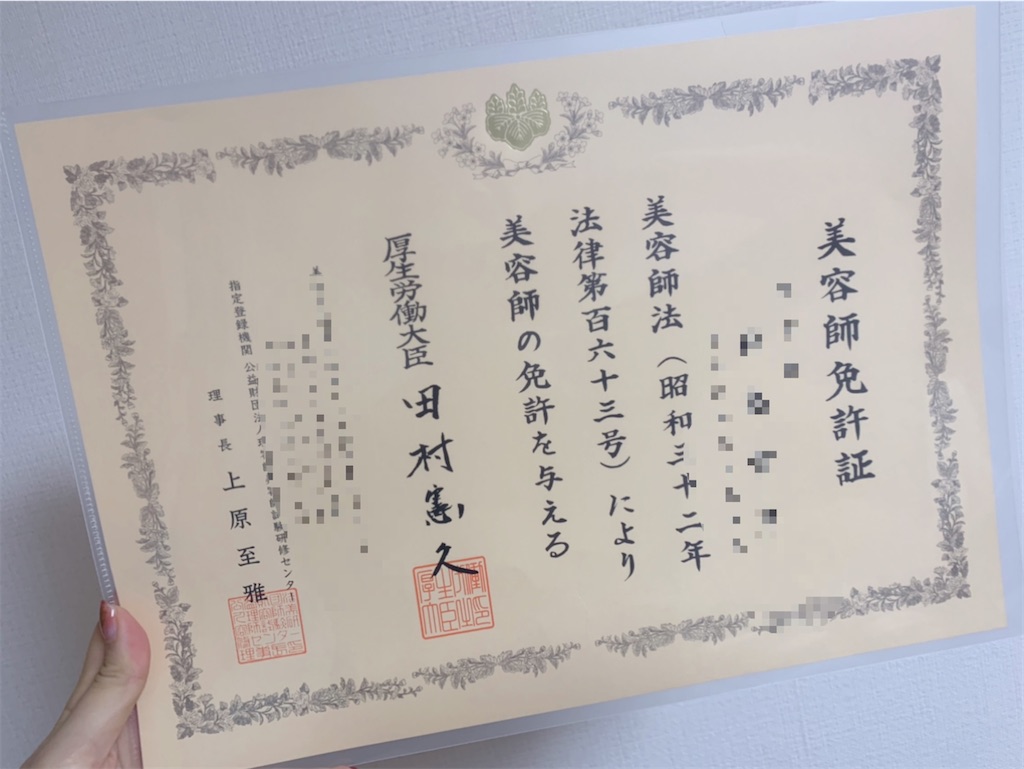 美容師免許証
美容師法（昭和三十二年
法律第百六十三号）により
美容師の免許を与える
厚生労働大臣 田村憲久
指定登録機関 公益財団法人理
研修センター
理事長 上原至雅